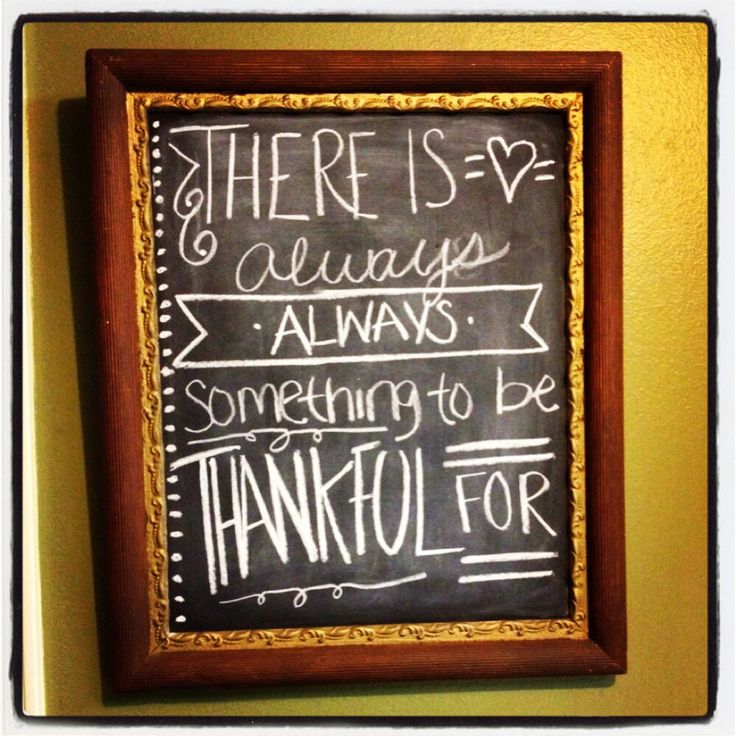 THERE IS
always
·ALWAYS·
something to be
THANKFUL FOR